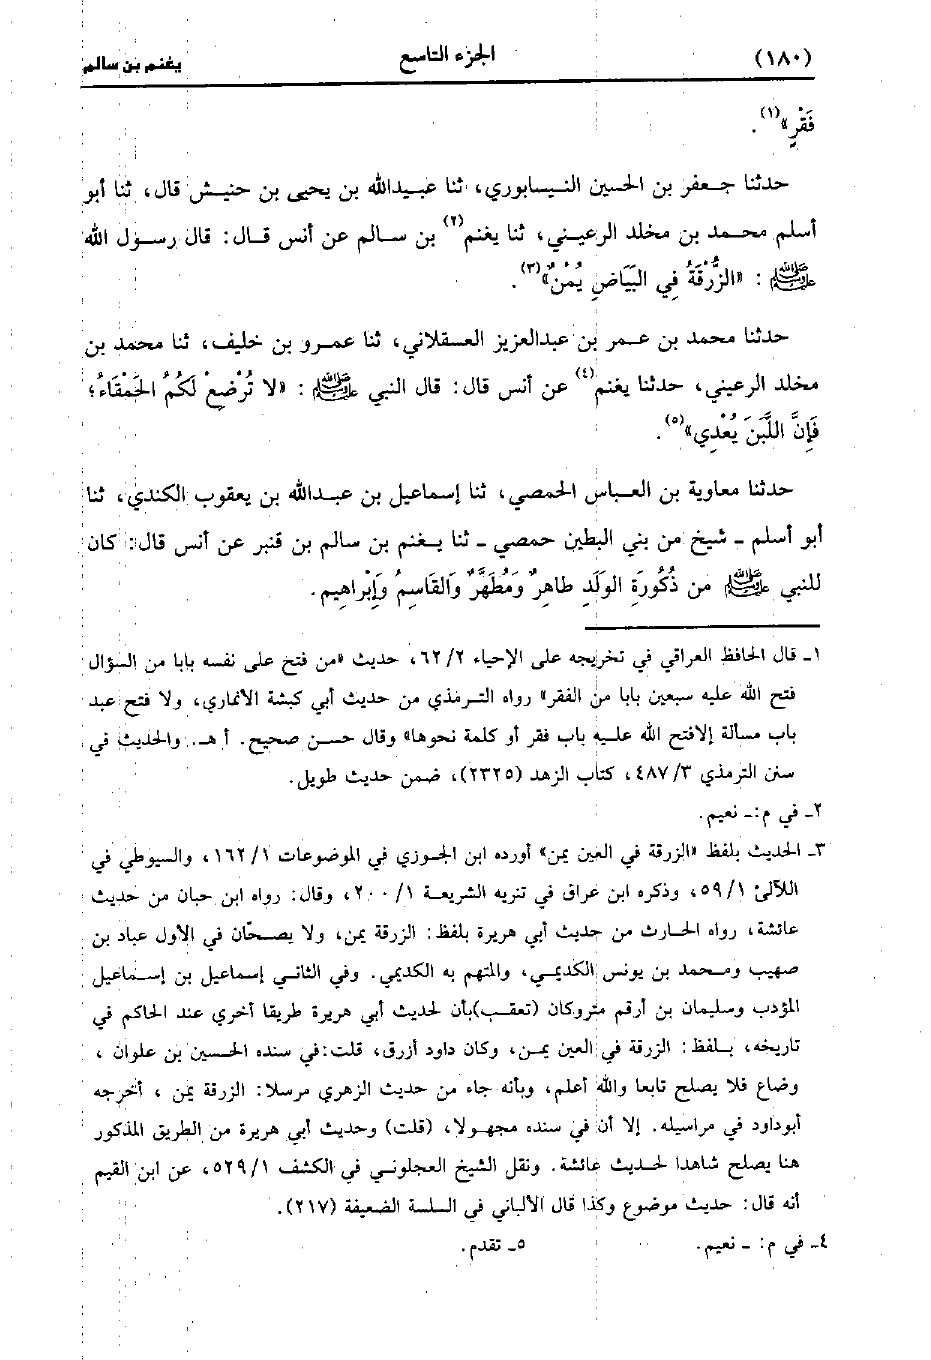 (١٨٠) الجزء التاسع يغنم بن سالم
فَقْرٍ»(١).
حدثنا جعفر بن الحسين النيسابوري، ثنا عبيدالله بن يحيى بن حنيش قال، ثنا أبو
أسلم محمد بن مخلد الرعيني، ثنا يغنم(٢) بن سالم عن أنس قال: قال رسول الله
ﷺ : «الزُّرْقَةُ فِي البَيَاضِ يُمْنٌ»(٣).
حدثنا محمد بن عمر بن عبدالعزيز العسقلاني، ثنا عمرو بن خليف، ثنا محمد بن
مخلد الرعيني، حدثنا يغنم(٤) عن أنس قال: قال النبي ﷺ : «لا تُرْضِعْ لَكُمُ الحَمْقَاءُ؛
فَإِنَّ اللَّبَنَ يُعْدِي»(٥).
حدثنا معاوية بن العباس الحمصي، ثنا إسماعيل بن عبدالله بن يعقوب الكندي، ثنا
أبو أسلم ـ شيخ من بني البطين حمصي ـ ثنا يغنم بن سالم بن قنبر عن أنس قال: كان
للنبي ﷺ من ذُكُورَةِ الوَلَدِ طاهِرٌ وَمُطَهَّرٌ وَالقَاسِمُ وَإِبْرَاهِيم.
١ـ قال الحافظ العراقي في تخريجه على الإحياء ٦٢/٢، حديث «من فتح على نفسه بابا من السؤال
فتح الله عليه سبعين بابا من الفقر» رواه الترمذي من حديث أبي كبشة الأنماري، ولا فتح عبد
باب مسألة إلافتح الله عليه باب فقر أو كلمة نحوها» وقال حسن صحيح. أ هـ. والحديث في
سنن الترمذي ٤٨٧/٣، كتاب الزهد (٢٣٢٥)، ضمن حديث طويل.
٢ـ في م:ـ نعيم.
٣ـ الحديث بلفظ «الزرقة في العين يمن» أورده ابن الجوزي في الموضوعات ١٦٢/١، والسيوطي في
اللآلئ ٥٩/١، وذكره ابن عراق في تنزيه الشريعة ٢٠٠/١، وقال: رواه ابن حبان من حديث
عائشة، رواه الحارث من حديث أبي هريرة بلفظ: الزرقة يمن، ولا يصحّان في الأول عباد بن
صهيب ومحمد بن يونس الكديمي، والمتهم به الكديمي. وفي الثاني إسماعيل بن إسماعيل
المؤدب وسليمان بن أرقم متروكان (تعقب)بأن لحديث أبي هريرة طريقا أخري عند الحاكم في
تاريخه، بلفظ: الزرقة في العين يمن، وكان داود أزرق، قلت:في سنده الحسين بن علوان ،
وضاع فلا يصلح تابعا والله أعلم، وبأنه جاء من حديث الزهري مرسلا: الزرقة يمن ، أخرجه
أبوداود في مراسيله. إلا أن في سنده مجهولا، (قلت) وحديث أبي هريرة من الطريق المذكور
هنا يصلح شاهدا لحديث عائشة. ونقل الشيخ العجلوني في الكشف ٥٢٩/١، عن ابن القيم
أنه قال: حديث موضوع وكذا قال الألباني في السلسة الضعيفة (٢١٧).
٤ـ في م: ـ نعيم. ٥ـ تقدم.